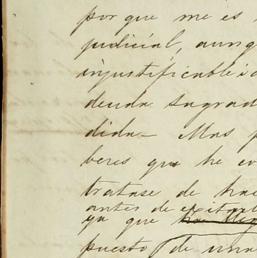 porque me es
judicial, aunq
injustificable i
deuda sagrad
dida— Mas p
beres que he
tratase de hac
antes de
ya que
puesto de una